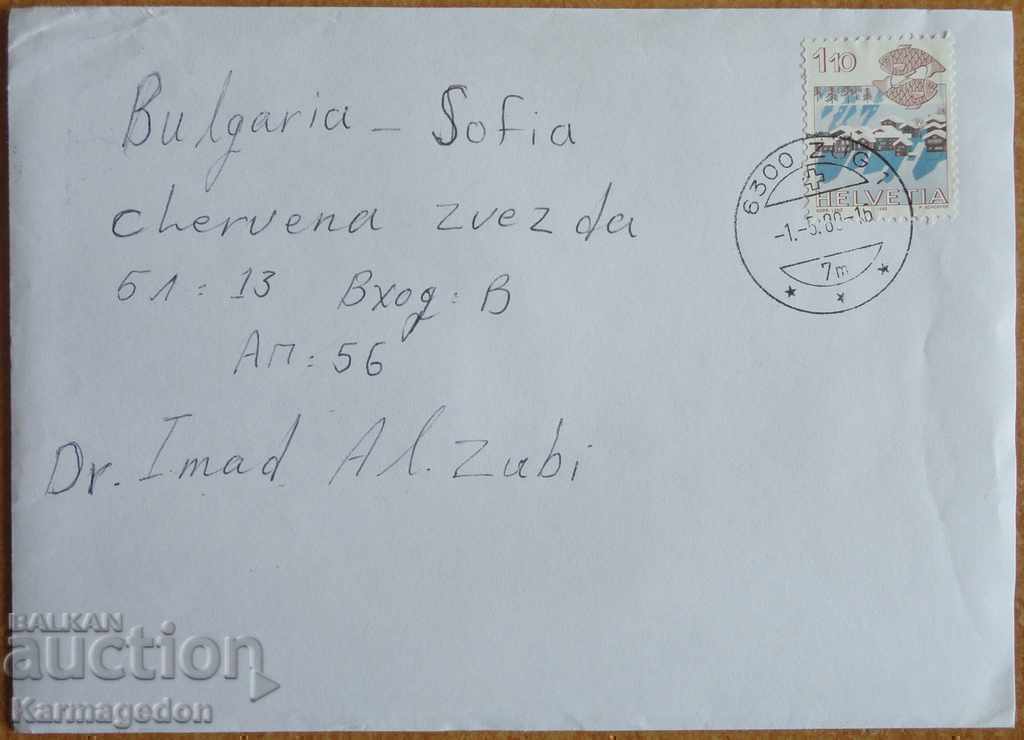 Bulgaria - Sofia
chervena zvezda
бл: 13 Вход: В
Ап: 56
Dr. Imad Al. Zubi
1 10
HELVETIA
6300 ZUG 1
7m
BALKAN
auction
Karmagedon